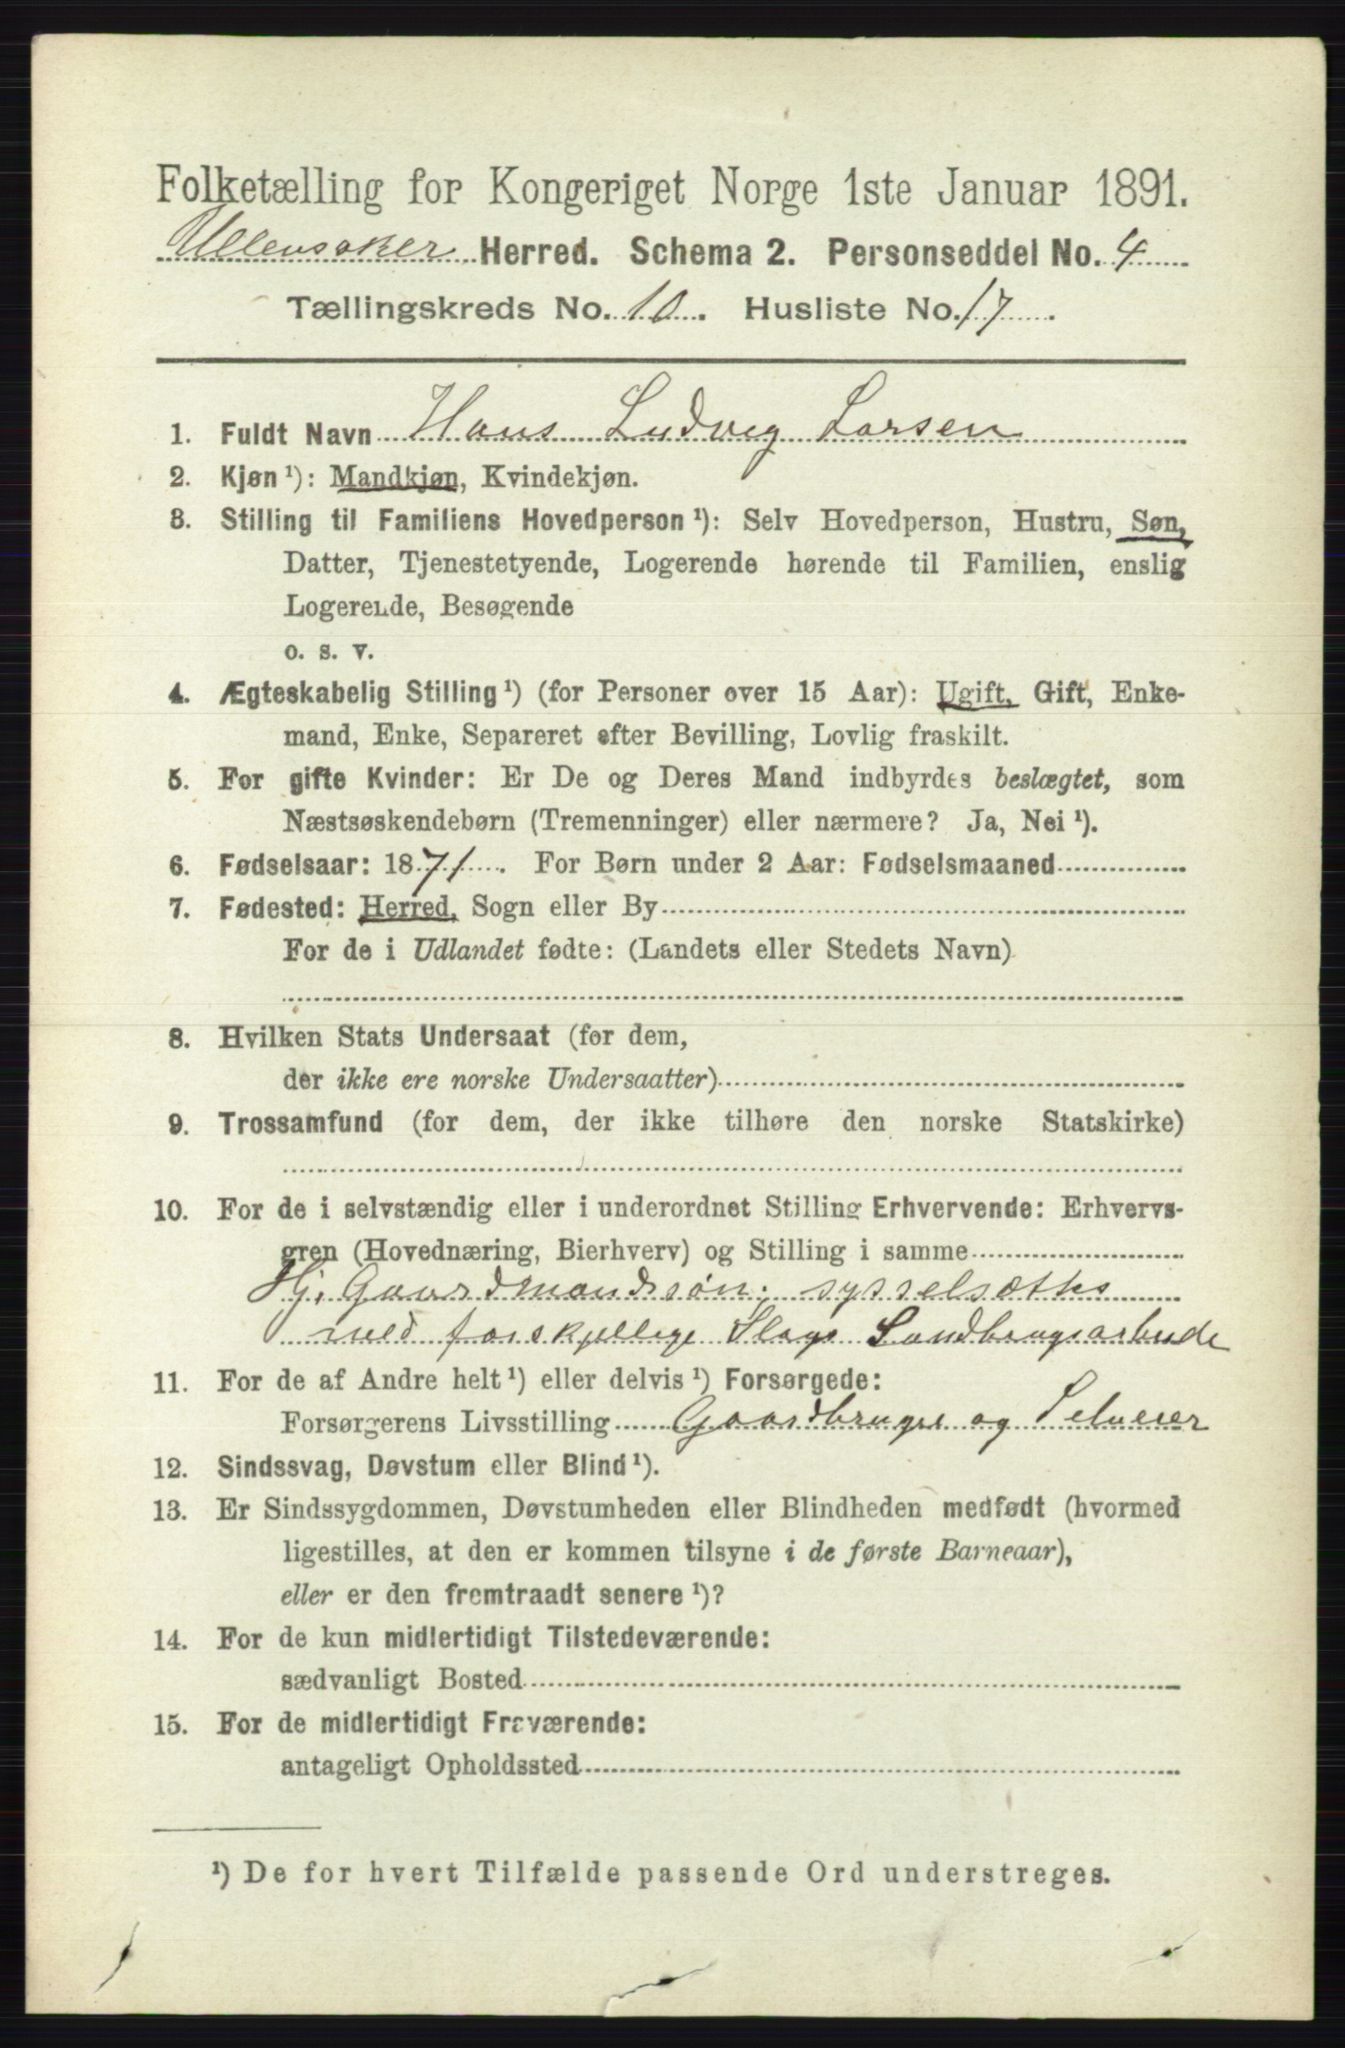 Folketælling for Kongeriget Norge 1ste Januar 1891.
Ullensaker Herred. Schema 2. Personseddel No. 4
Tællingskreds No. 10. Husliste No. 17
1. Fuldt Navn Hans Ludvig Larsen
2. Kjøn ¹): Mandkjøn, Kvindekjøn.
3. Stilling til Familiens Hovedperson ¹): Selv Hovedperson, Hustru, Søn,
Datter, Tjenestetyende, Logerende hørende til Familien, enslig
Logerende, Besøgende
o. s. v.
4. Ægteskabelig Stilling ¹) (for Personer over 15 Aar): Ugift, Gift, Enke-
mand, Enke, Separeret efter Bevilling, Lovlig fraskilt.
5. For gifte Kvinder: Er De og Deres Mand indbyrdes beslægtet, som
Næstsøskendebørn (Tremenninger) eller nærmere? Ja, Nei ¹).
6. Fødselsaar: 1871. For Børn under 2 Aar: Fødselsmaaned
7. Fødested: Herred, Sogn eller By
For de i Udlandet fødte: (Landets eller Stedets Navn)
8. Hvilken Stats Undersaat (for dem,
der ikke ere norske Undersaatter)
9. Trossamfund (for dem, der ikke tilhøre den norske Statskirke)
10. For de i selvstændig eller i underordnet Stilling Erhvervende: Erhvervs-
gren (Hovednæring, Bierhverv) og Stilling i samme
Hj. Gaardmandssøn; sysselsættes
med forskjellige Slags Landbrugsarbeide
11. For de af Andre helt ¹) eller delvis ¹) Forsørgede:
Forsørgerens Livsstilling Gaardbruger og Selveier
12. Sindssvag, Døvstum eller Blind ¹).
13. Er Sindssygdommen, Døvstumheden eller Blindheden medfødt (hvormed
ligestilles, at den er kommen tilsyne i de første Barneaar),
eller er den fremtraadt senere ¹)?
14. For de kun midlertidigt Tilstedeværende:
sædvanligt Bosted
15. For de midlertidigt Fraværende:
antageligt Opholdssted
¹) De for hvert Tilfælde passende Ord understreges.